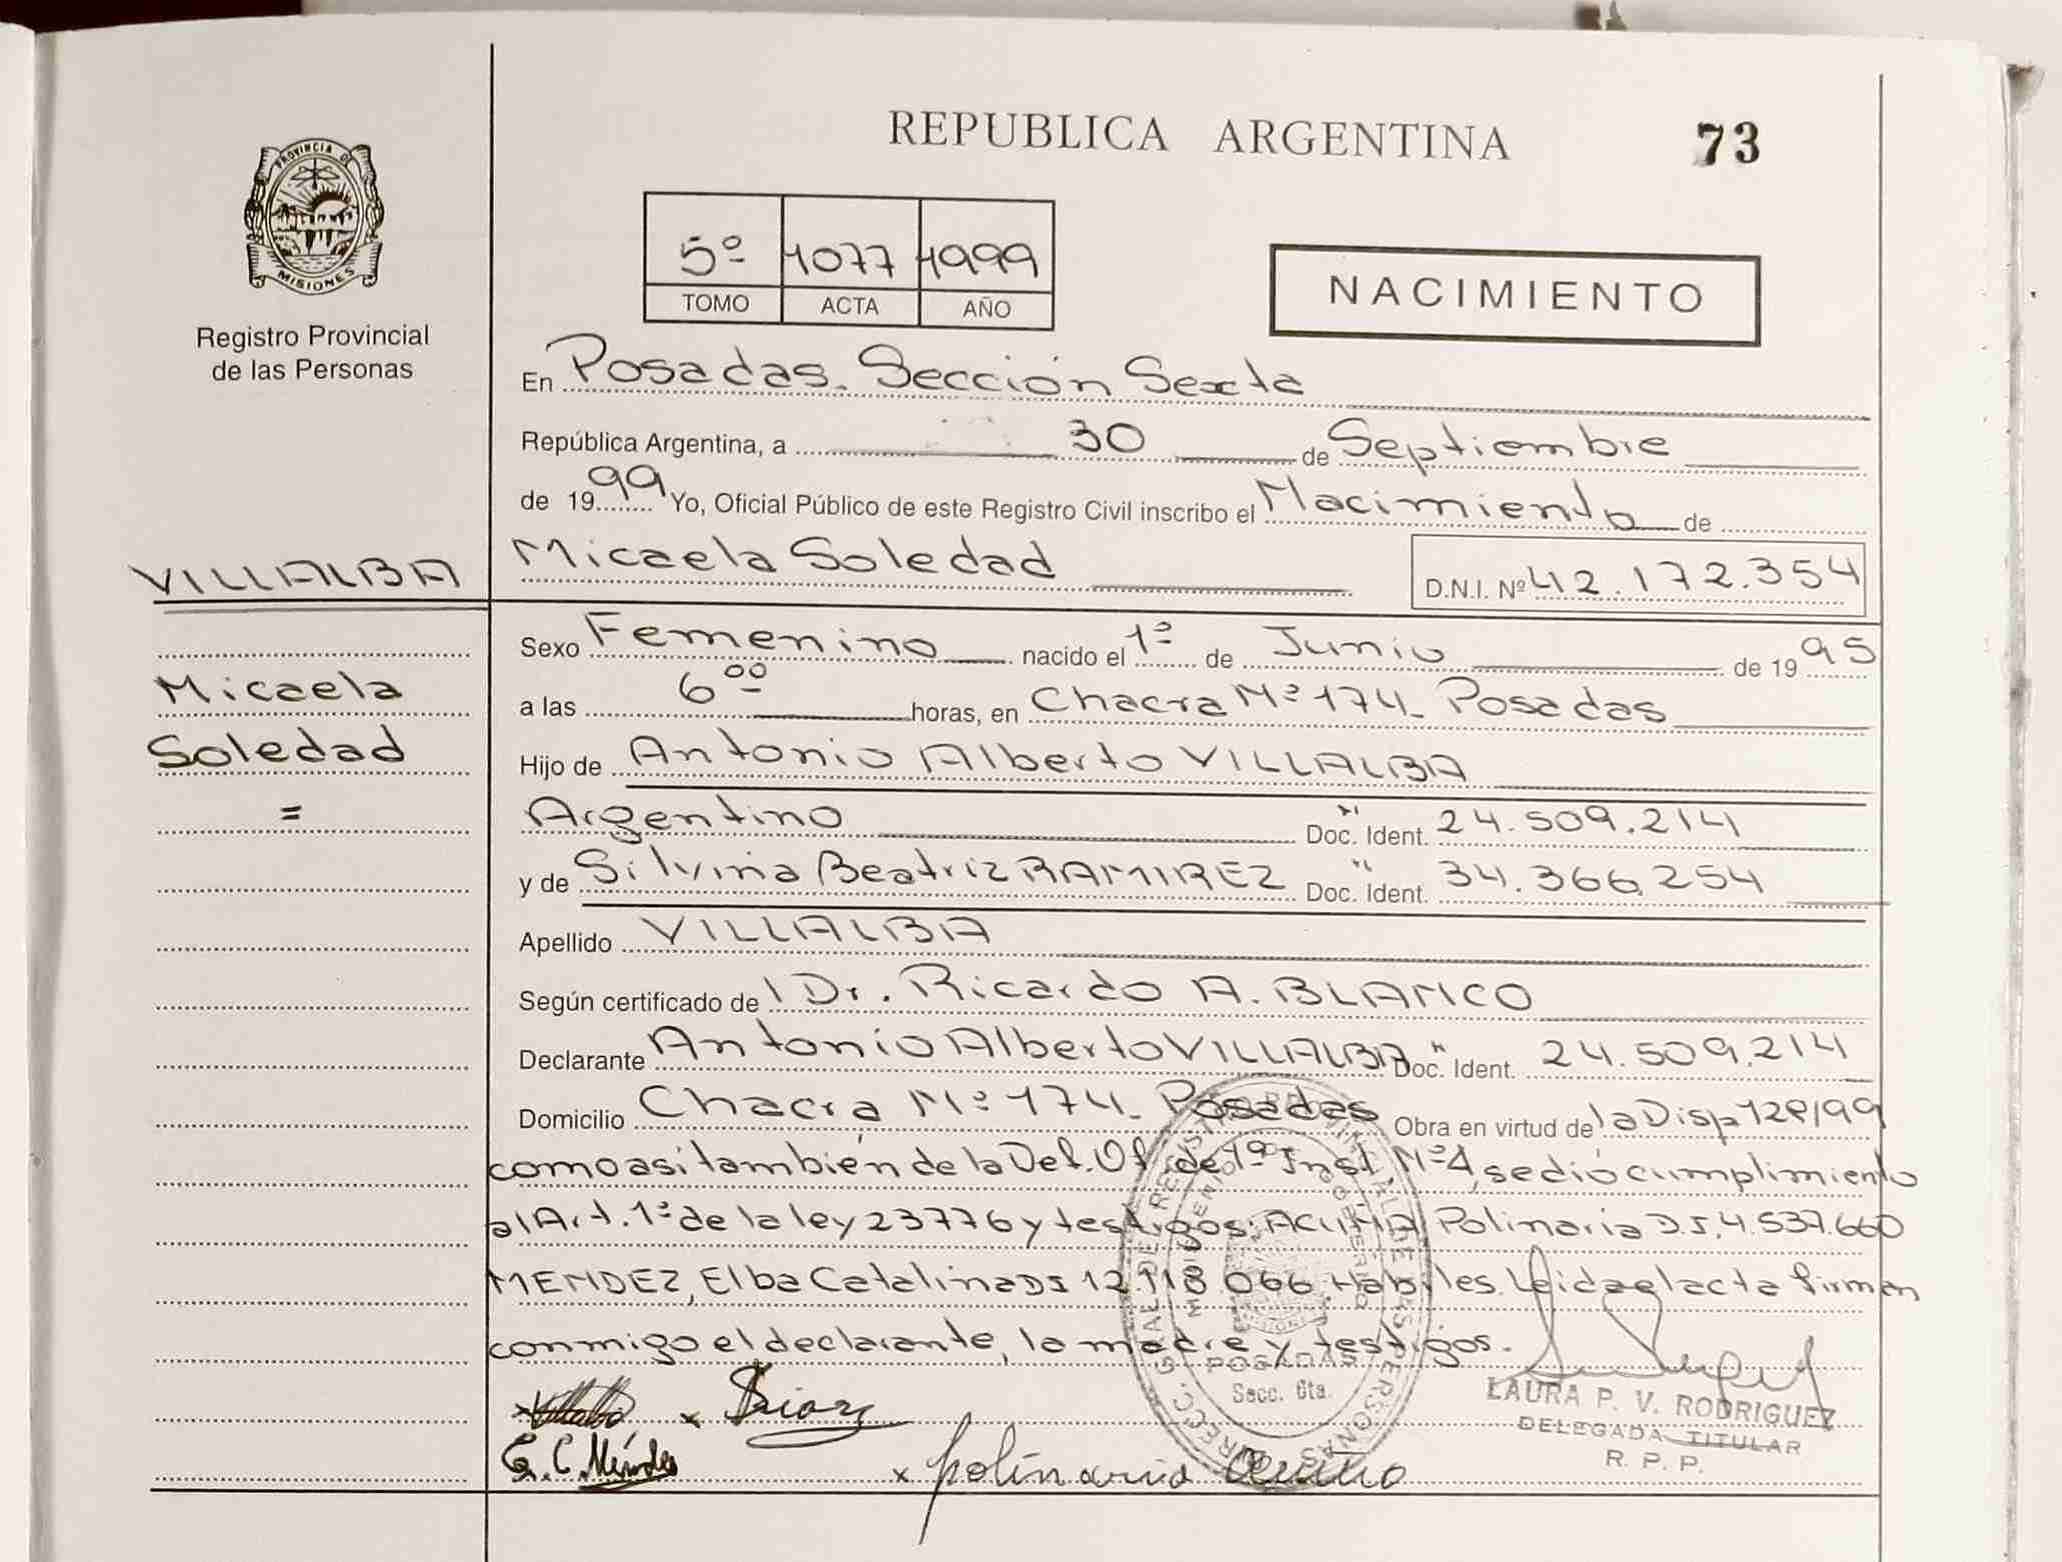 REPUBLICA ARGENTINA
73
PROVINCIA DE
MISIONES
Registro Provincial
de las Personas
5º 1077 1999
TOMO ACTA AÑO
NACIMIENTO
En Posadas. Sección Sexta
República Argentina, a 30 de Septiembre
de 1999 Yo, Oficial Público de este Registro Civil inscribo el Nacimiento de
VILLALBA
Micaela Soledad D.N.I. Nº 42.172.354
Sexo Femenino nacido el 1º de Junio de 1995
Micaela
a las 6 00 horas, en Chacra Nº 174- Posadas
Soledad
Hijo de Antonio Alberto VILLALBA
=
Argentino Doc. Ident. 24.509.214
y de Silvina Beatriz RAMIREZ Doc. Ident. 34.366.254
Apellido VILLALBA
Según certificado de Dr. Ricardo A. BLANCO
Declarante Antonio Alberto VILLALBA Doc. Ident. 24.509.214
Domicilio Chacra Nº 174- Posadas Obra en virtud de la Disp 128/99
como asi también de la Def. Of. de 1ª Inst Nº 4, se dió cumplimiento
al Art. 1º de la ley 23776 y testigos: ACUÑA Polinaria D.I. 4.537.660
MENDEZ, Elba Catalina DI 12.118.066 Habiles. Leida el acta firman
conmigo el declarante, la madre y testigos.
POSADAS
Secc. 6ta.
LAURA P. V. RODRIGUEZ
DELEGADA TITULAR
R. P. P.
E. C. Méndez
x polinaria